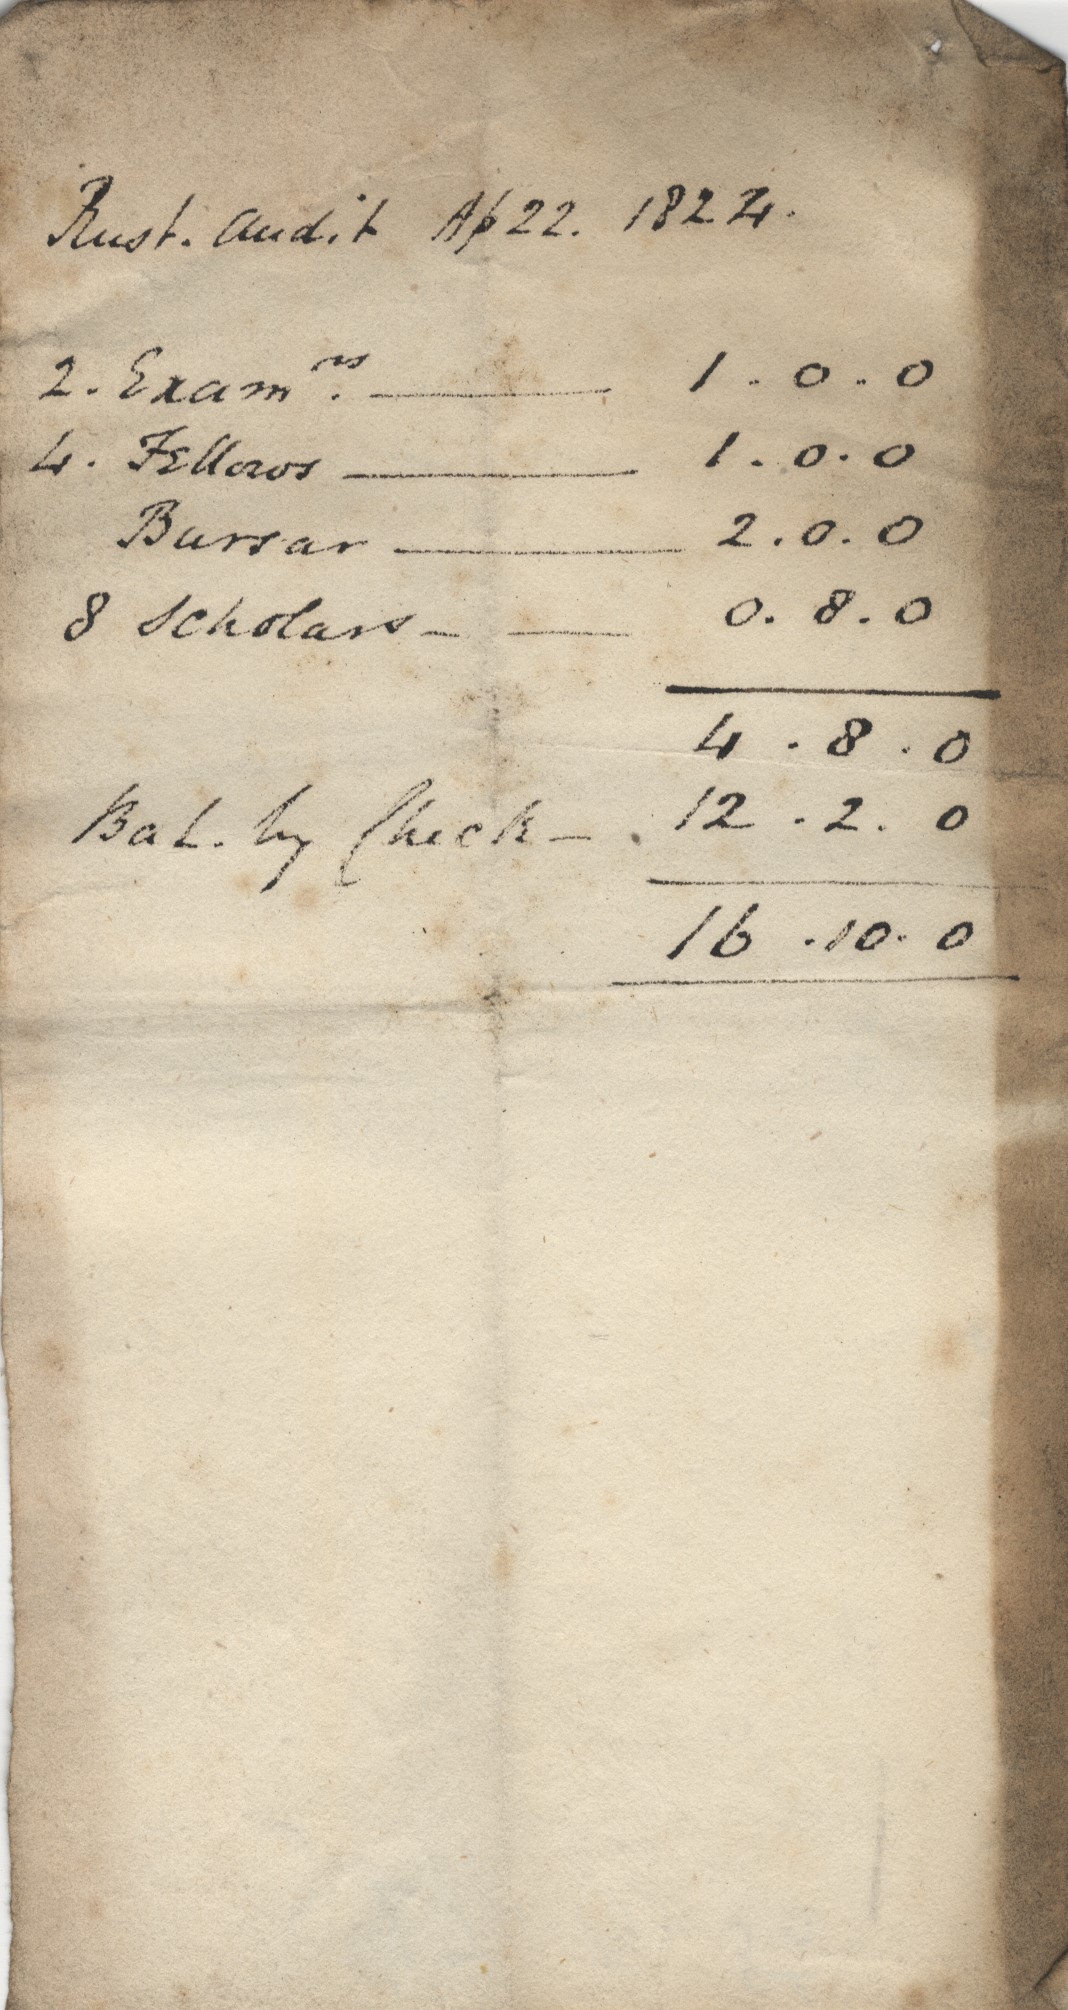 Rust. Audit Ap 22. 1824.
2. Exam.rs — 1.0.0
4. Fellows — 1.0.0
Bursar — 2.0.0
8 Scholars — 0.8.0
4.8.0
Bal. by Check — 12.2.0
16.10.0